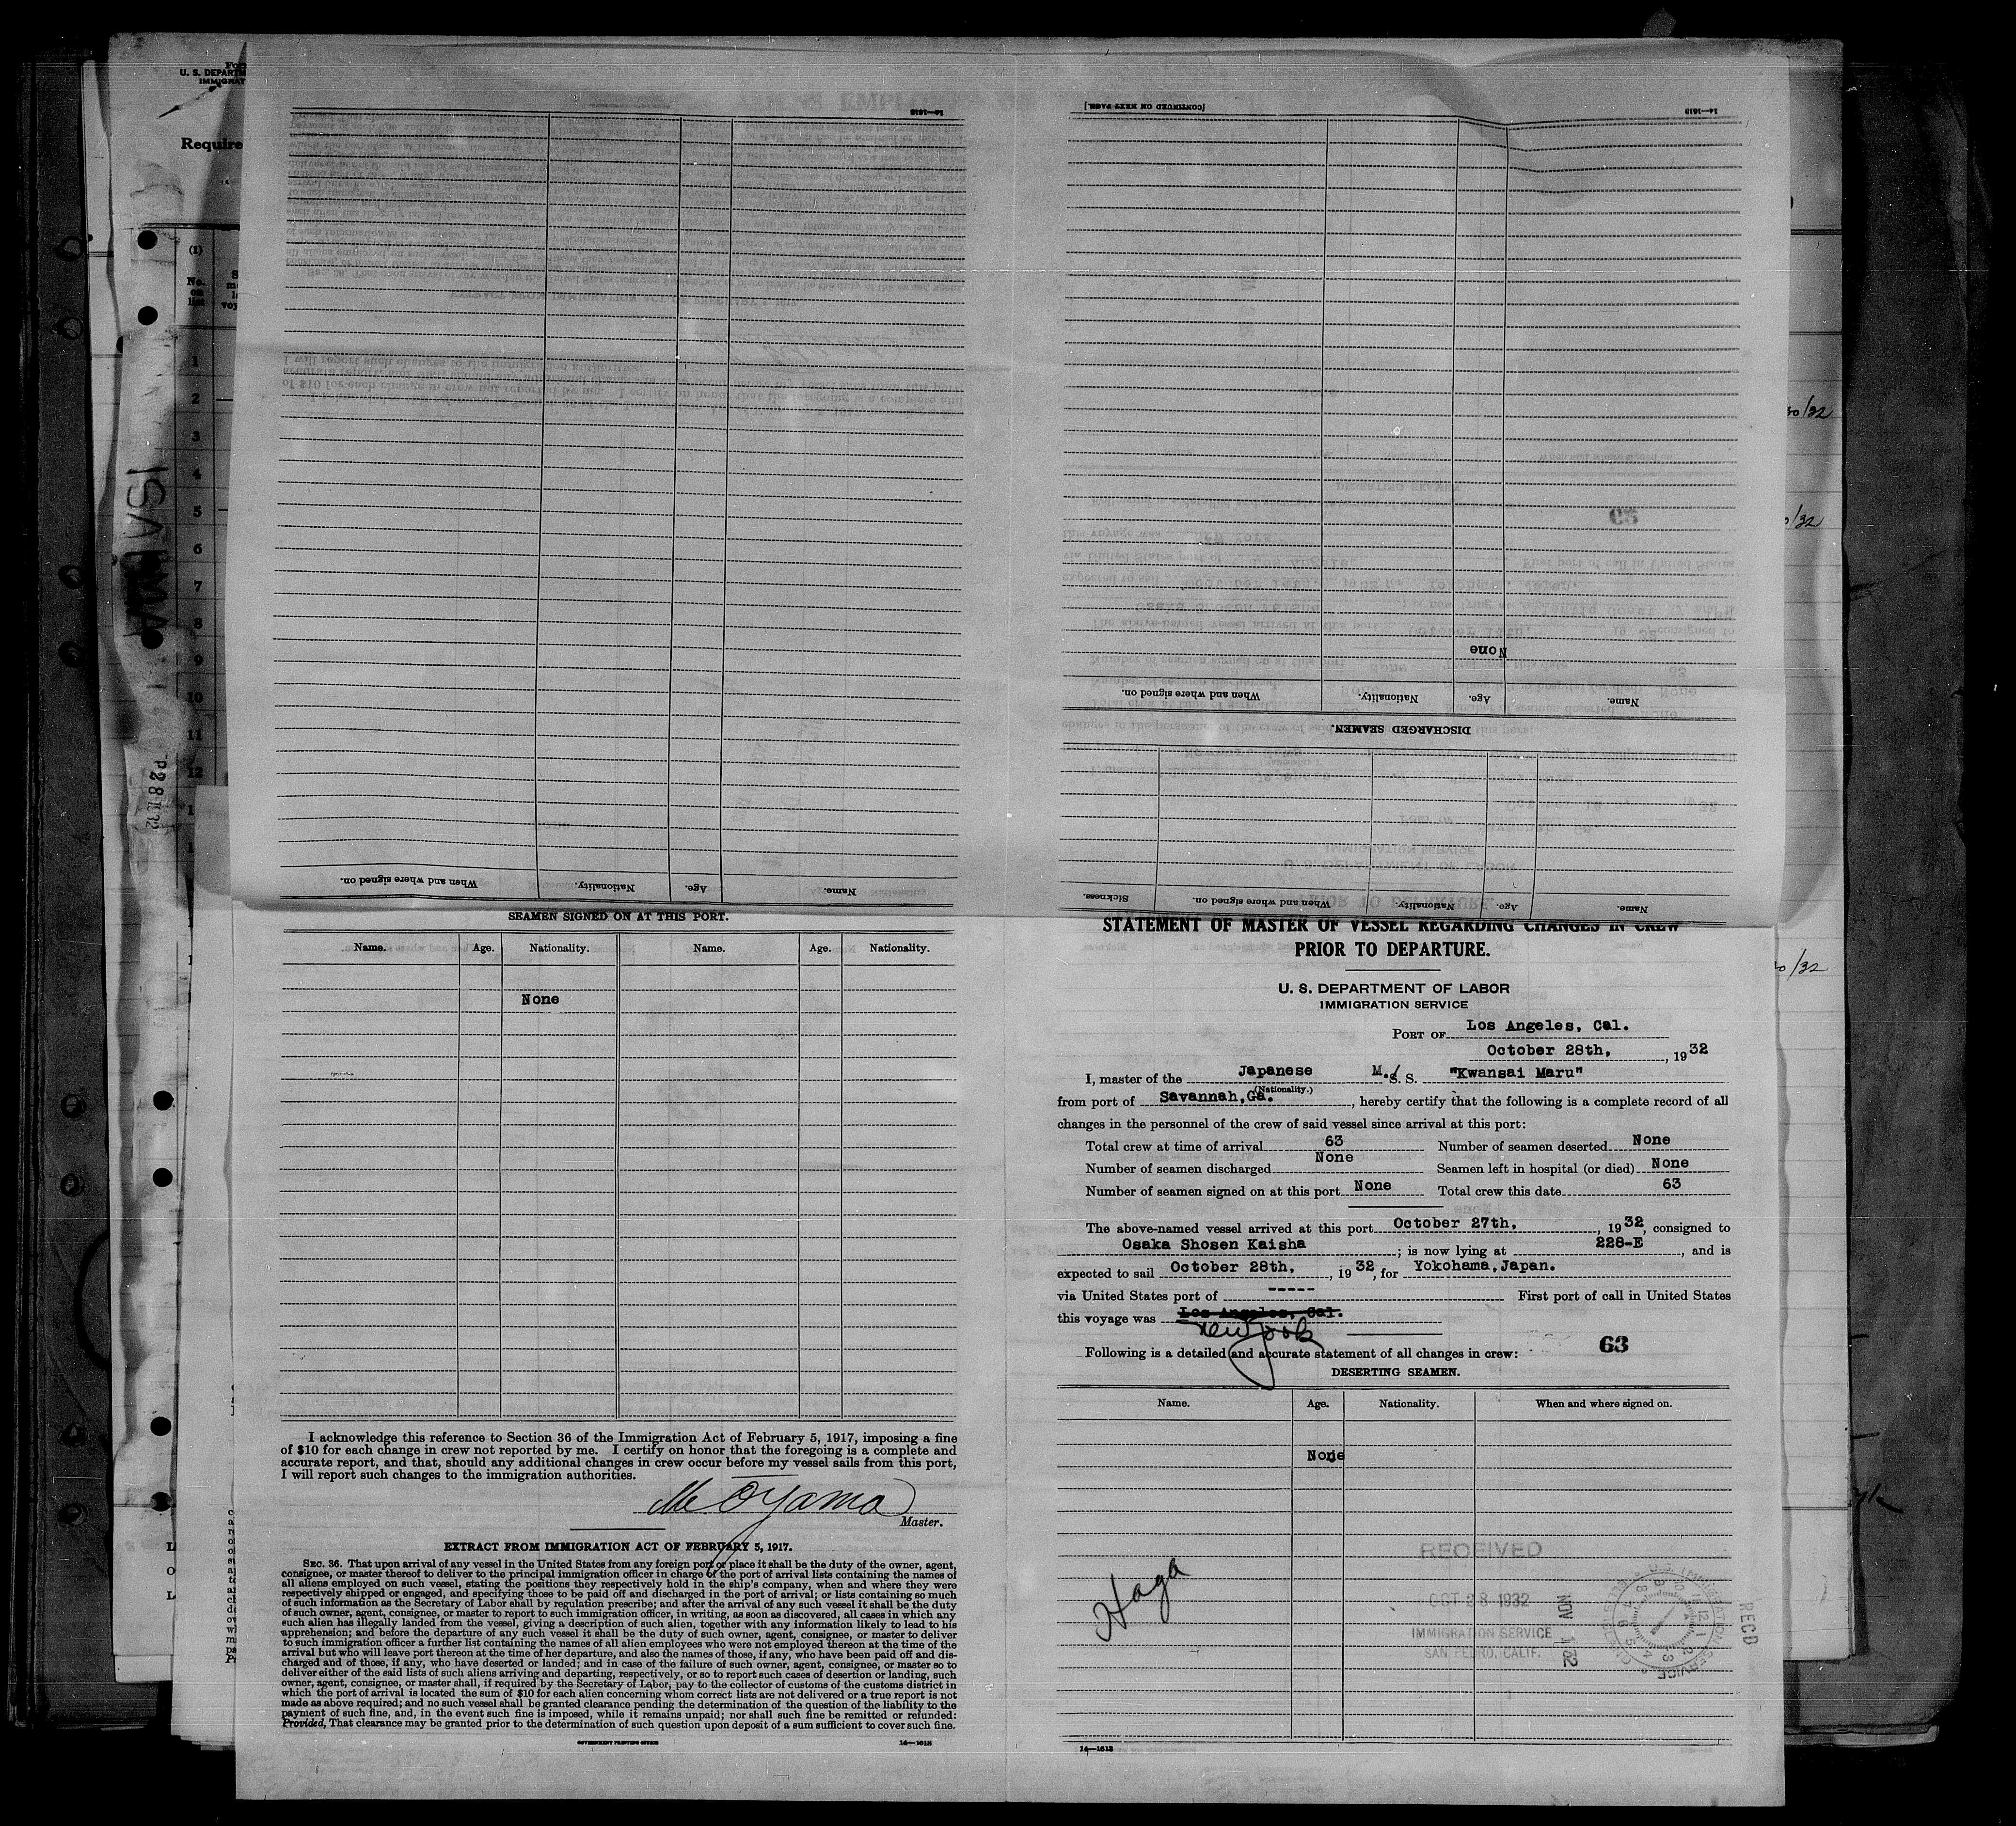 U. S. DEPART
IMMIGRAT
Require
(1)
No.
on
list
1
2
3
4
5
6
7
8
9
10
11
12
14—1613
When and where signed on.
Nationality.
Age.
Name.
[CONTINUED ON NEXT PAGE.]
14—1613
None
When and where signed on.
Nationality.
Age.
Name.
DISCHARGED SEAMEN.
Sickness.
When and where signed on.
Nationality.
Age.
Name.
SEAMEN SIGNED ON AT THIS PORT.
Name. Age. Nationality. Name. Age. Nationality.
None
I acknowledge this reference to Section 36 of the Immigration Act of February 5, 1917, imposing a fine
of $10 for each change in crew not reported by me. I certify on honor that the foregoing is a complete and
accurate report, and that, should any additional changes in crew occur before my vessel sails from this port,
I will report such changes to the immigration authorities.
M. Oyama
Master.
EXTRACT FROM IMMIGRATION ACT OF FEBRUARY 5, 1917.
SEC. 36. That upon arrival of any vessel in the United States from any foreign port or place it shall be the duty of the owner, agent,
consignee, or master thereof to deliver to the principal immigration officer in charge of the port of arrival lists containing the names of
all aliens employed on such vessel, stating the positions they respectively hold in the ship's company, when and where they were
respectively shipped or engaged, and specifying those to be paid off and discharged in the port of arrival; or lists containing so much
of such information as the Secretary of Labor shall by regulation prescribe; and after the arrival of any such vessel it shall be the duty
of such owner, agent, consignee, or master to report to such immigration officer, in writing, as soon as discovered, all cases in which any
such alien has illegally landed from the vessel, giving a description of such alien, together with any information likely to lead to his
apprehension; and before the departure of any such vessel it shall be the duty of such owner, agent, consignee, or master to deliver
to such immigration officer a further list containing the names of all alien employees who were not employed thereon at the time of the
arrival but who will leave port thereon at the time of her departure, and also the names of those, if any, who have been paid off and dis-
charged and of those, if any, who have deserted or landed; and in case of the failure of such owner, agent, consignee, or master so to
deliver either of the said lists of such aliens arriving and departing, respectively, or so to report such cases of desertion or landing, such
owner, agent, consignee, or master shall, if required by the Secretary of Labor, pay to the collector of customs of the customs district in
which the port of arrival is located the sum of $10 for each alien concerning whom correct lists are not delivered or a true report is not
made as above required; and no such vessel shall be granted clearance pending the determination of the question of the liability to the
payment of such fine, and, in the event such fine is imposed, while it remains unpaid; nor shall such fine be remitted or refunded:
Provided, That clearance may be granted prior to the determination of such question upon deposit of a sum sufficient to cover such fine.
GOVERNMENT PRINTING OFFICE
14—1613
STATEMENT OF MASTER OF VESSEL REGARDING CHANGES IN CREW
PRIOR TO DEPARTURE.
U. S. DEPARTMENT OF LABOR
IMMIGRATION SERVICE
PORT OF Los Angeles, Cal.
October 28th, , 1932
I, master of the Japanese M. S. S. "Kwansai Maru"
(Nationality.)
from port of Savannah,Ga. , hereby certify that the following is a complete record of all
changes in the personnel of the crew of said vessel since arrival at this port:
Total crew at time of arrival 63 Number of seamen deserted None
Number of seamen discharged None Seamen left in hospital (or died) None
Number of seamen signed on at this port None Total crew this date 63
The above-named vessel arrived at this port October 27th, , 1932, consigned to
Osaka Shosen Kaisha ; is now lying at 228-E , and is
expected to sail October 28th, , 1932, for Yokohama,Japan.
via United States port of ----- First port of call in United States
this voyage was Los Angeles, Cal.
New York
Following is a detailed and accurate statement of all changes in crew: 63
DESERTING SEAMEN.
Name. Age. Nationality. When and where signed on.
None
Haga
RECEIVED
OCT 28 1932
IMMIGRATION SERVICE
SAN PEDRO, CALIF.
NOV 1 32
REC'D
14—1613